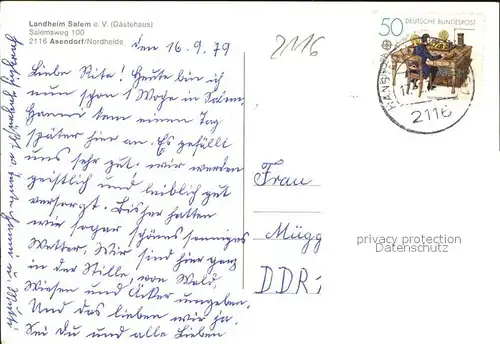 Landheim Salem e. V. (Gästehaus)
Salemsweg 100
2116 Asendorf/Nordheide
den 16.9.79
2116
50 DEUTSCHE BUNDESPOST
2116
Liebe Rita! Heute bin ich
nun schon 1 Woche in Salem,
Hanni kam einen Tag
später hier an. Es gefällt
uns sehr gut. wir werden
geistlich und leiblich gut
versorgt. Bisher hatten
wir sogar schönes sonniges
Wetter. Wir sind hier ganz
in der Stille, von Wald,
Wiesen und Äcker umgeben.
Und das lieben wir ja.
Sei Du und alle Lieben
herzlich gegrüßt Hanni u.
Frau
Mügg
DDR
privacy protection
Datenschutz